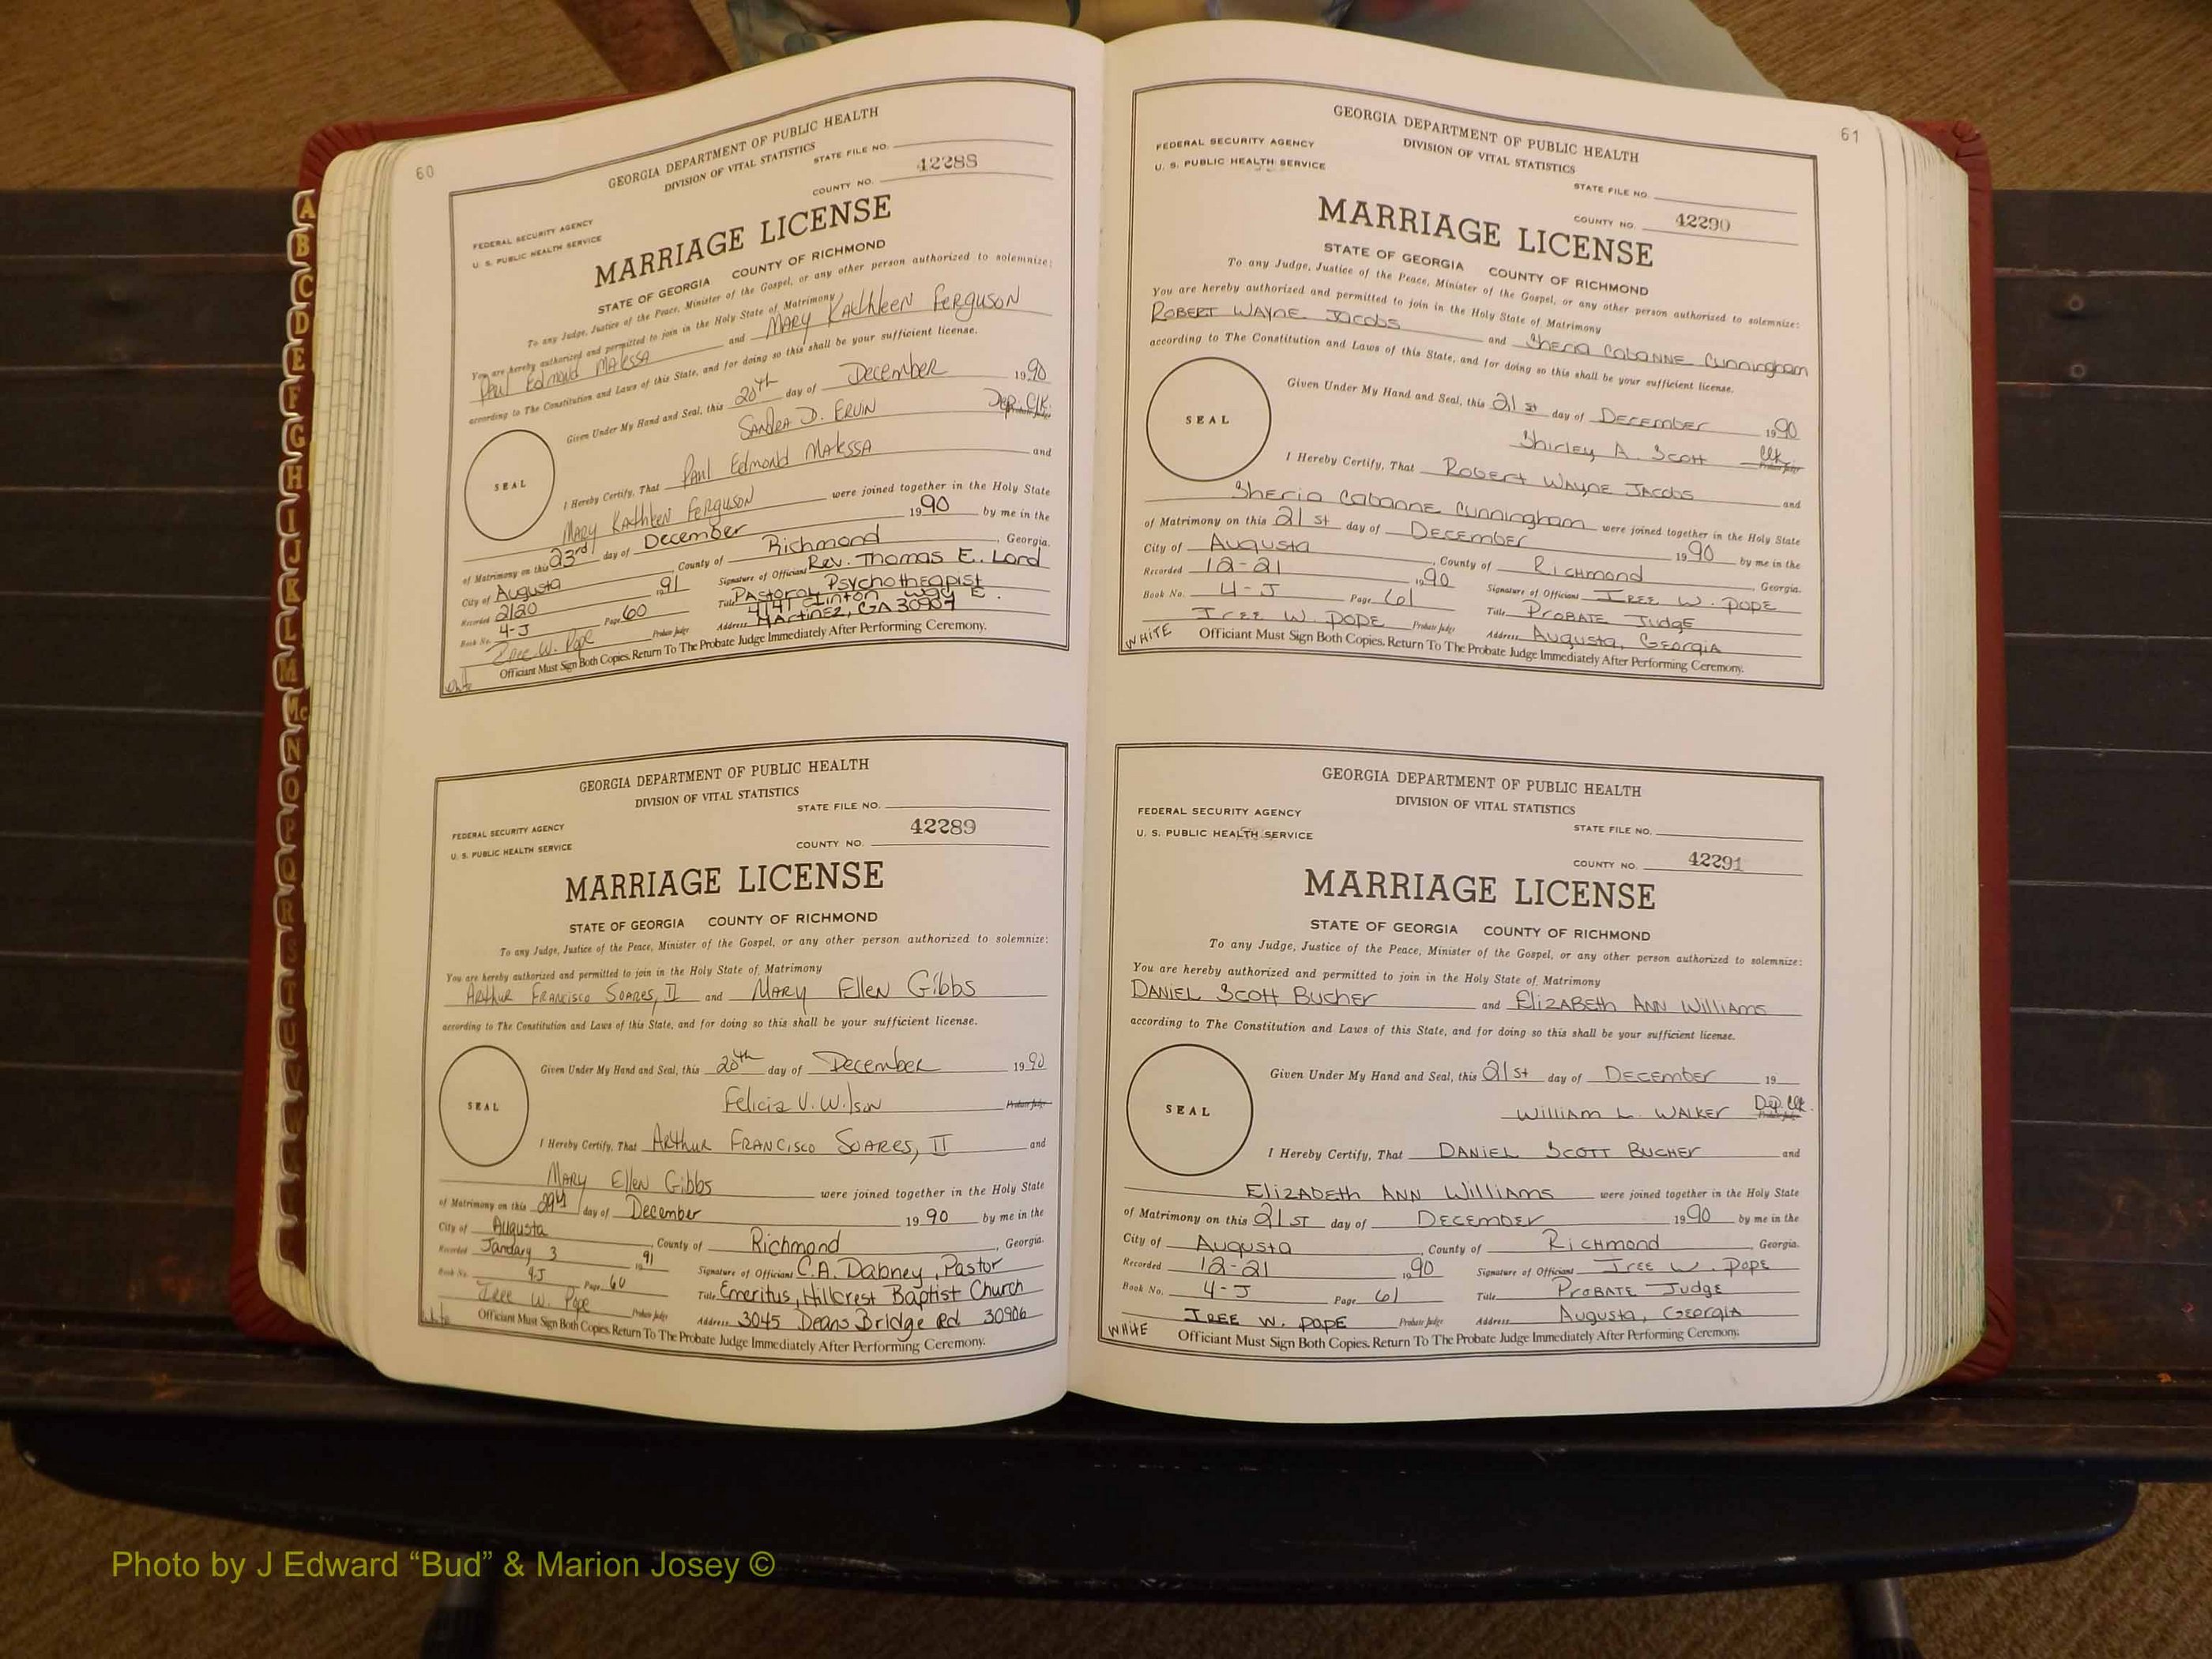 60
GEORGIA DEPARTMENT OF PUBLIC HEALTH
DIVISION OF VITAL STATISTICS
STATE FILE NO.
42288
COUNTY NO.
FEDERAL SECURITY AGENCY
U. S. PUBLIC HEALTH SERVICE
MARRIAGE LICENSE
STATE OF GEORGIA COUNTY OF RICHMOND
To any Judge, Justice of the Peace, Minister of the Gospel, or any other person authorized to solemnize:
You are hereby authorized and permitted to join in the Holy State of Matrimony
Paul Edmond Malessa and Mary Kathleen Ferguson
according to The Constitution and Laws of this State, and for doing so this shall be your sufficient license.
Given Under My Hand and Seal, this 20th day of December 1990
Sandra D. Ervin Dep. Clk.
SEAL
I Hereby Certify, That Paul Edmond Malessa and
Mary Kathleen Ferguson were joined together in the Holy State
of Matrimony on this 23rd day of December 1990 by me in the
City of Augusta, County of Richmond, Georgia.
Recorded 2/20 1991 Signature of Officiant Rev. Thomas E. Lord
Book No. 4-J Page 60 Title Pastoral Psychotherapist
Iree W. Pope Probate Judge Address 4141 Clinton Way E.
Martinez, GA 30907
Officiant Must Sign Both Copies. Return To The Probate Judge Immediately After Performing Ceremony.
White
GEORGIA DEPARTMENT OF PUBLIC HEALTH
DIVISION OF VITAL STATISTICS
STATE FILE NO.
FEDERAL SECURITY AGENCY
U. S. PUBLIC HEALTH SERVICE
42289
COUNTY NO.
MARRIAGE LICENSE
STATE OF GEORGIA COUNTY OF RICHMOND
To any Judge, Justice of the Peace, Minister of the Gospel, or any other person authorized to solemnize:
You are hereby authorized and permitted to join in the Holy State of Matrimony
Arthur Francisco Soares, II and Mary Ellen Gibbs
according to The Constitution and Laws of this State, and for doing so this shall be your sufficient license.
Given Under My Hand and Seal, this 20th day of December 1990
Felicia V. Wilson Probate Judge
SEAL
I Hereby Certify, That Arthur Francisco Soares, II and
Mary Ellen Gibbs were joined together in the Holy State
of Matrimony on this day of December 1990 by me in the
City of Augusta, County of Richmond, Georgia.
Recorded January 3 1991 Signature of Officiant C.A. Dabney, Pastor
Book No. 4-J Page 60 Title Emeritus, Hillcrest Baptist Church
Iree W. Pope Probate Judge Address 3045 Deans Bridge Rd 30906
Officiant Must Sign Both Copies. Return To The Probate Judge Immediately After Performing Ceremony.
White
61
GEORGIA DEPARTMENT OF PUBLIC HEALTH
DIVISION OF VITAL STATISTICS
FEDERAL SECURITY AGENCY
U. S. PUBLIC HEALTH SERVICE
STATE FILE NO.
COUNTY NO. 42290
MARRIAGE LICENSE
STATE OF GEORGIA COUNTY OF RICHMOND
To any Judge, Justice of the Peace, Minister of the Gospel, or any other person authorized to solemnize:
You are hereby authorized and permitted to join in the Holy State of Matrimony
Robert Wayne Jacobs and Sheria Cabanne Cunningham
according to The Constitution and Laws of this State, and for doing so this shall be your sufficient license.
Given Under My Hand and Seal, this 21st day of December 1990
Shirley A. Scott Clk Probate Judge
SEAL
I Hereby Certify, That Robert Wayne Jacobs and
Sheria Cabanne Cunningham were joined together in the Holy State
of Matrimony on this 21st day of December 1990 by me in the
City of Augusta, County of Richmond, Georgia.
Recorded 12-21 1990 Signature of Officiant Iree W. Pope
Book No. 4-J Page 61 Title Probate Judge
Iree W. Pope Probate Judge Address Augusta, Georgia
WHITE Officiant Must Sign Both Copies. Return To The Probate Judge Immediately After Performing Ceremony.
GEORGIA DEPARTMENT OF PUBLIC HEALTH
DIVISION OF VITAL STATISTICS
FEDERAL SECURITY AGENCY
U. S. PUBLIC HEALTH SERVICE
STATE FILE NO.
COUNTY NO. 42291
MARRIAGE LICENSE
STATE OF GEORGIA COUNTY OF RICHMOND
To any Judge, Justice of the Peace, Minister of the Gospel, or any other person authorized to solemnize:
You are hereby authorized and permitted to join in the Holy State of Matrimony
Daniel Scott Bucher and Elizabeth Ann Williams
according to The Constitution and Laws of this State, and for doing so this shall be your sufficient license.
Given Under My Hand and Seal, this 21st day of December 19
William L. Walker Dep. Clk. Probate Judge
SEAL
I Hereby Certify, That Daniel Scott Bucher and
Elizabeth Ann Williams were joined together in the Holy State
of Matrimony on this 21st day of December 1990 by me in the
City of Augusta, County of Richmond, Georgia.
Recorded 12-21 1990 Signature of Officiant Iree W. Pope
Book No. 4-J Page 61 Title Probate Judge
Iree W. Pope Probate Judge Address Augusta, Georgia
WHITE Officiant Must Sign Both Copies. Return To The Probate Judge Immediately After Performing Ceremony.
A
B
C
D
E
F
G
H
I
J
K
L
M
Mc
N
O
P
Q
R
S
T
U
V
W
Photo by J Edward “Bud” & Marion Josey ©